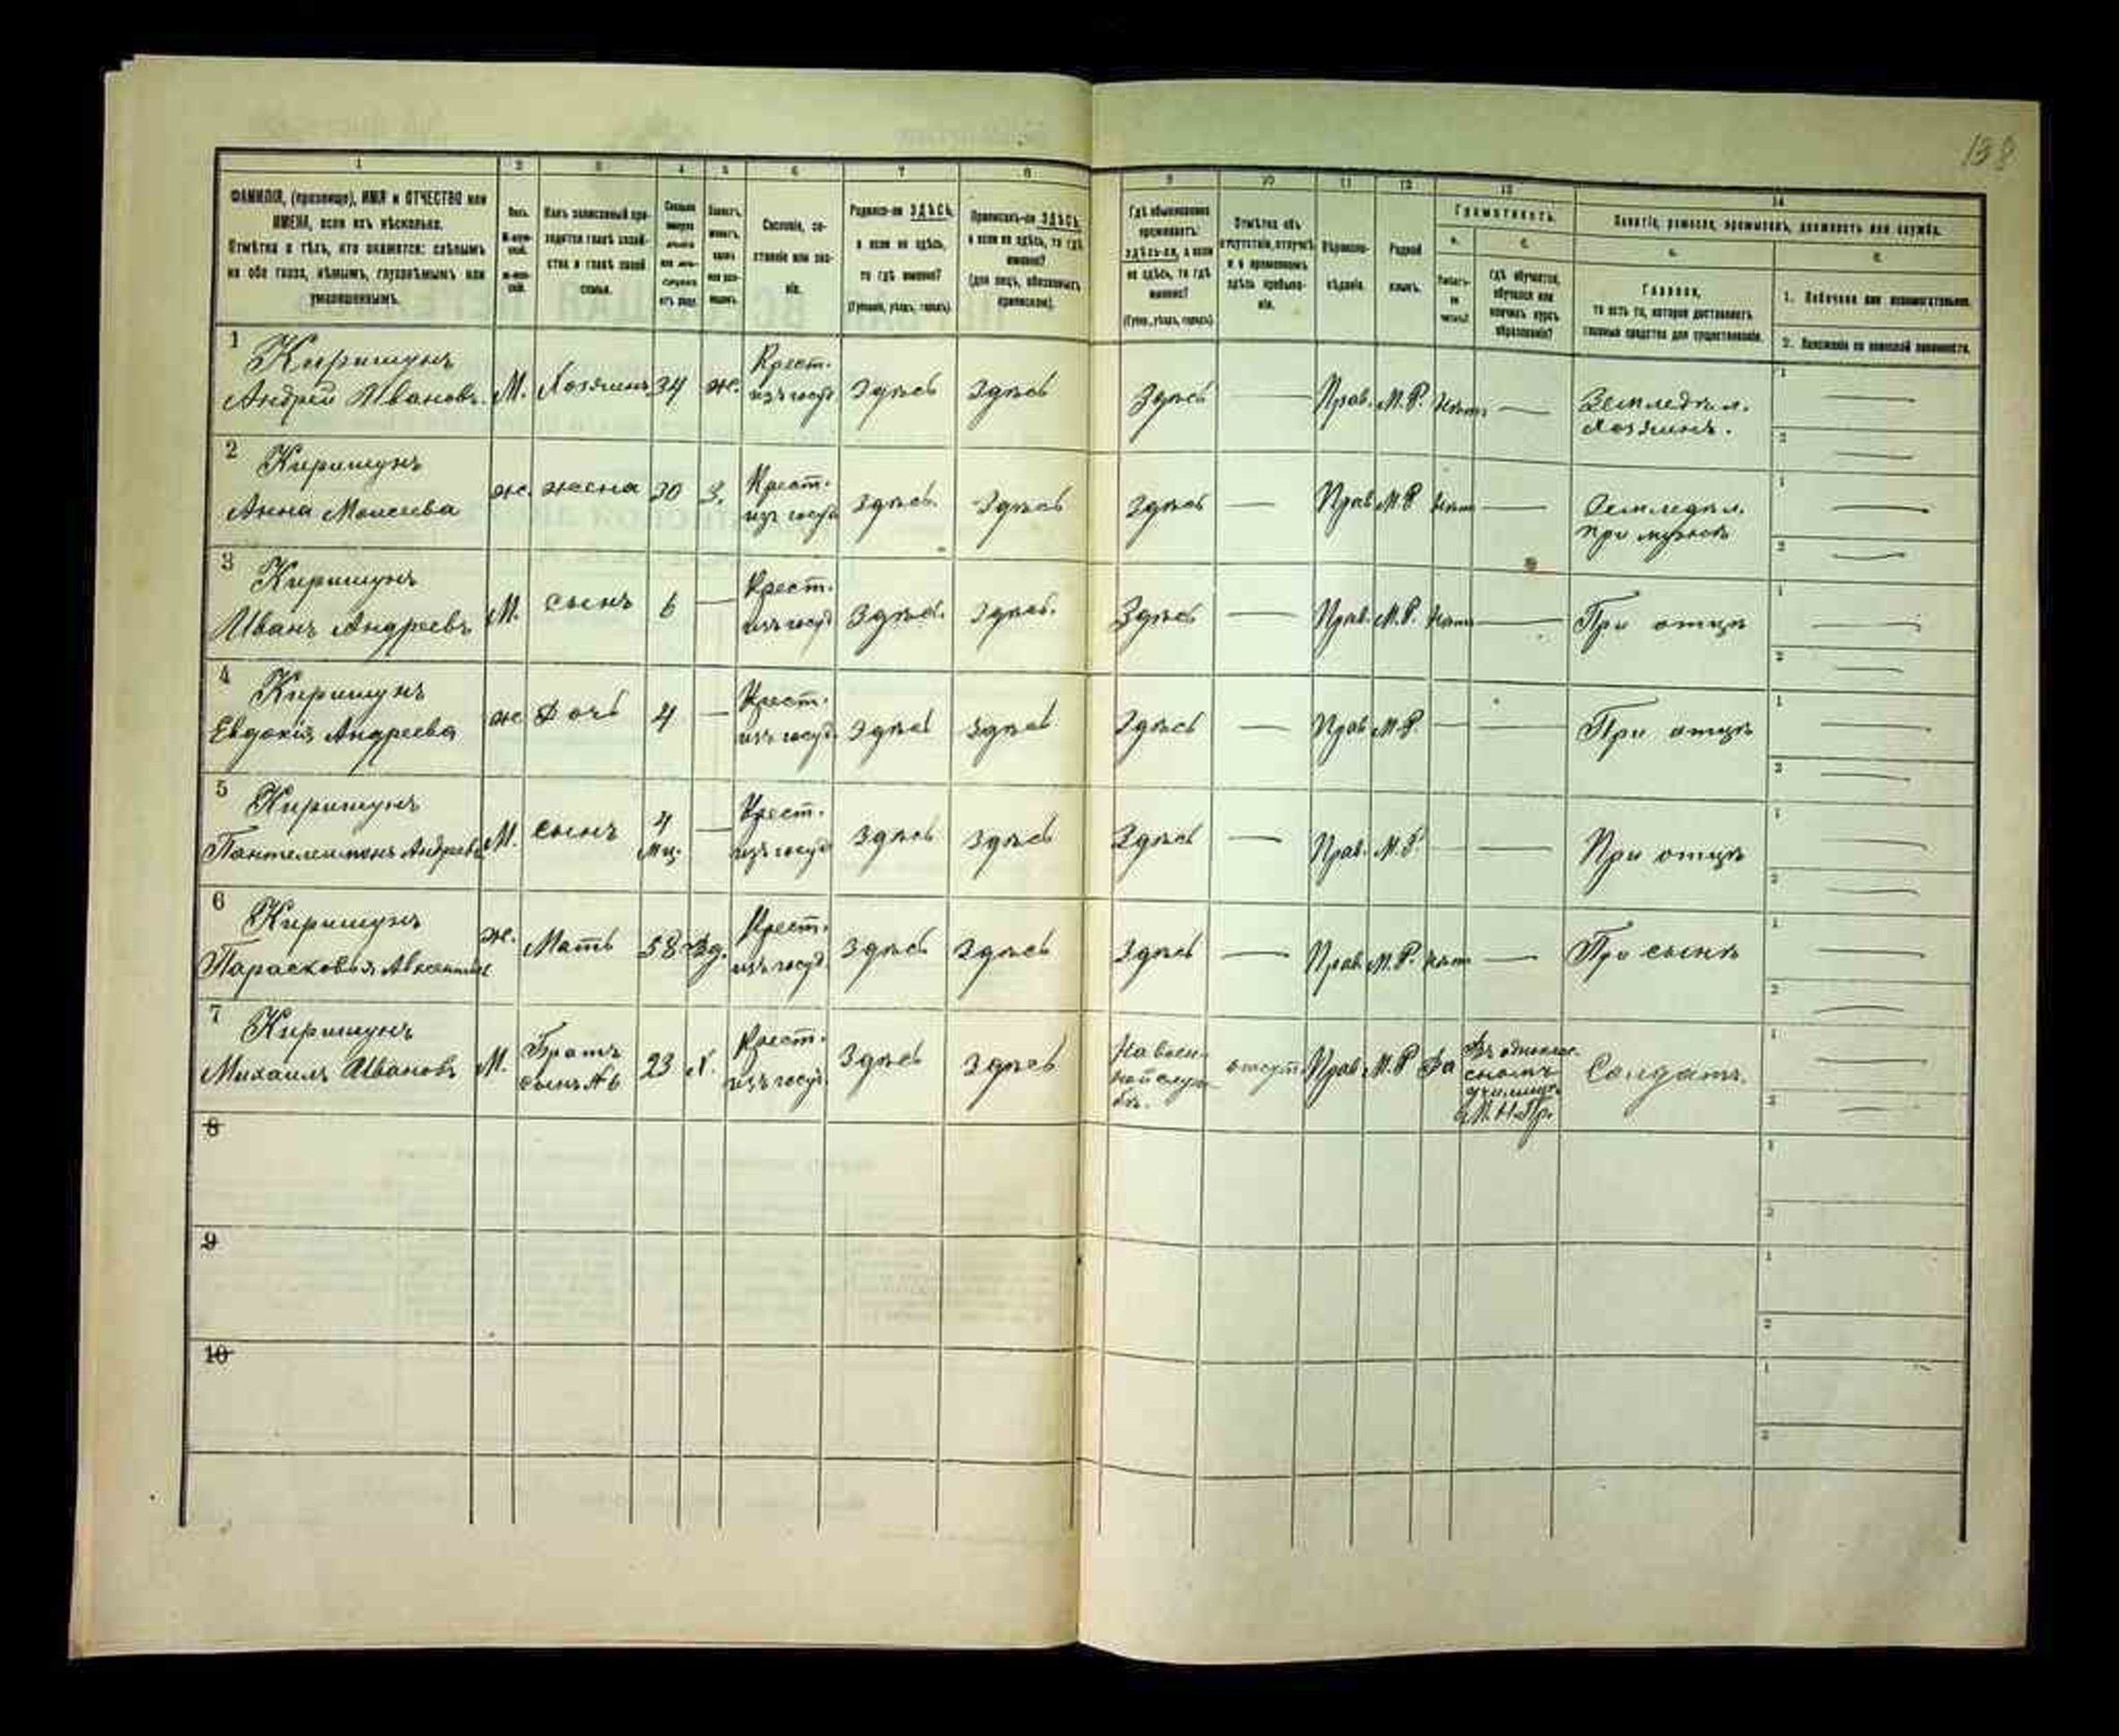 138
1 2 3 4 5 6 7 8 9 10 11 12 13 14
ФАМИЛІЯ, (прозвище), ИМЯ и ОТЧЕСТВО или
ИМЕНА, если ихъ нѣсколько.
Отмѣтка о тѣхъ, кто окажется: слѣпымъ
на оба глаза, нѣмымъ, глухонѣмымъ или
умалишеннымъ.
Полъ.
Какъ записанный при-
ходится главѣ хозяй-
ства и главѣ своей
семьи.
Сословіе, со-
стояніе или зва-
ніе.
Родился-ли ЗДѢСЬ,
а если не здѣсь,
то гдѣ именно?
(Губернія, уѣздъ, городъ).
Приписанъ-ли ЗДѢСЬ,
а если не здѣсь, то гдѣ
именно?
(для лицъ, обязанныхъ
припиской).
Гдѣ обыкновенно
проживаетъ:
здѣсь-ли, а если
не здѣсь, то гдѣ
именно?
(Губер., уѣздъ, городъ).
Отмѣтка объ
отсутствіи, отлучкѣ
и о временномъ
здѣсь пребыва-
ніи.
Вѣроиспо-
вѣданіе.
Родной
языкъ.
Грамотность.
а.
б.
Гдѣ обучается,
обучался или
кончилъ курсъ
образованія?
Занятіе, ремесло, промыселъ, должность или служба.
а.
Главное,
то есть то, которое доставляетъ
главныя средства для существованія.
б.
1. Побочное или вспомогательное.
2. Положеніе по воинской повинности.
1 Киришунъ
Андрей Ивановъ. М. Хозяинъ 34 ж. Крест. изъ госуд. Здѣсь Здѣсь Здѣсь — Прав. М.Р. Нѣтъ — Земледѣл. хозяинъ. 1 — 2 —
2 Киришунъ
Анна Моисеева ж. жена 30 З. Крест. изъ госуд Здѣсь. Здѣсь Здѣсь — Прав М.Р Нѣтъ — Земледѣл. при мужѣ 1 — 2 —
3 Киришунъ
Иванъ Андреевъ М. сынъ 6 — Крест. изъ госуд Здѣсь. Здѣсь. Здѣсь — Прав. М.Р. Нѣтъ — При отцѣ 1 — 2 —
4 Киришунъ
Евдокія Андреева ж Дочь 4 — Крест. изъ госуд. Здѣсь Здѣсь Здѣсь — Прав М.Р. — — При отцѣ 1 — 2 —
5 Киришунъ
Пантелеимонъ Андреевъ М. сынъ 4 мц. — Крест. изъ госуд Здѣсь Здѣсь Здѣсь — Прав. М.Р — При отцѣ 1 — 2 —
6 Киришунъ
Парасковія ж. Мать 58 Вд. Крест. изъ госуд. Здѣсь Здѣсь Здѣсь — Прав М.Р. Нѣт — При сынѣ 1 — 2 —
7 Киришунъ
Михаилъ Ивановъ М. Братъ сынъ №6 23 х. Крест. изъ госуд. Здѣсь Здѣсь На воен- ной служ- бѣ. отсут. Прав. М.Р Да Въ однокла- сномъ училищѣ М.Н.Пр. Солдатъ. 1 — 2 —
8 1
2
9 1
2
10 1
2